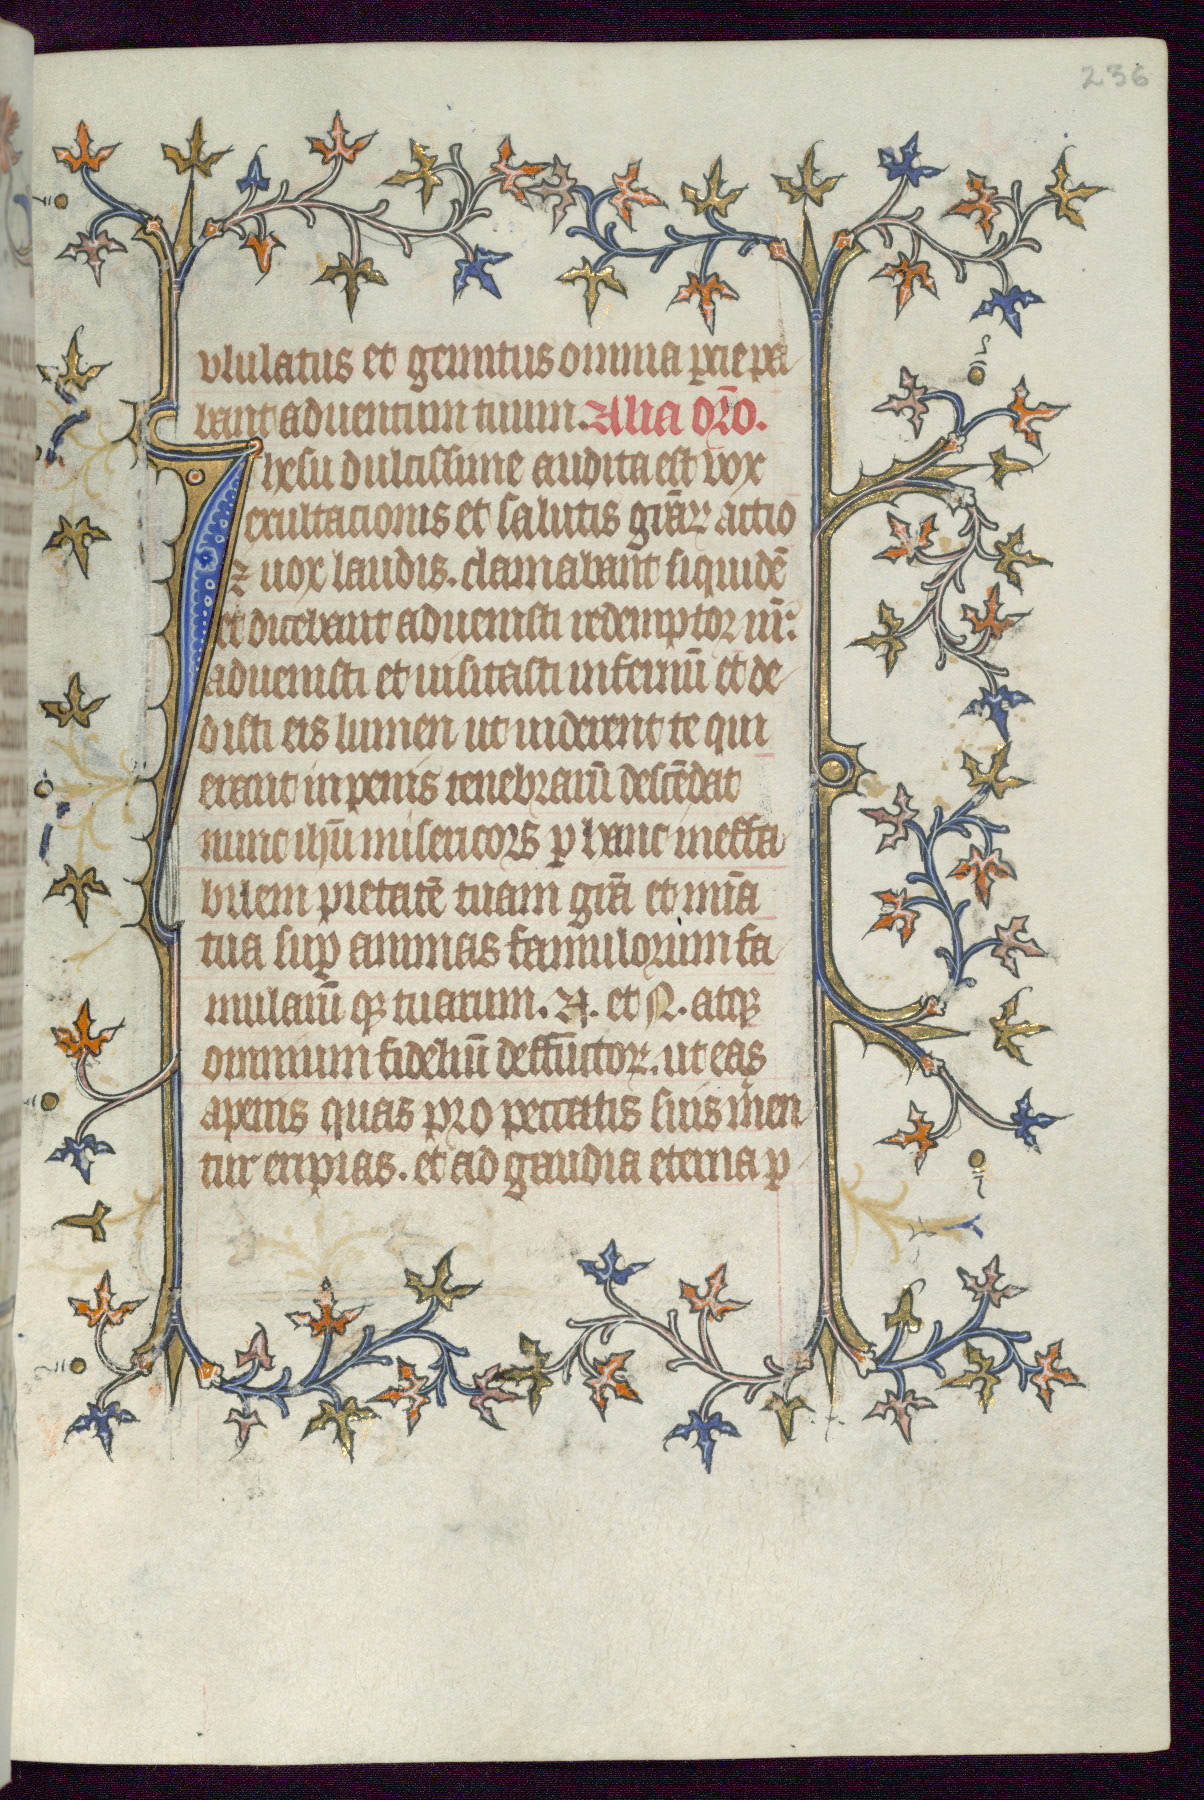 236
ululatus et gemitus omnia precpa
rant aduentum tuum. Alia or̄o.
Ihesu dulcissime audita est uox
exultacionis et salutis gr̄aꝝ actio
⁊ uox laudis. clamabant siquidē
et dicebant aduenisti redemptor nr̄.
aduenisti et uisitasti infernū et de
disti eis lumen ut uiderent te qui
erant in penis tenebrarū descēdat
nunc ihū misericors ꝑ hanc ineffa
bilem pietatē tuam gr̄a et mīa
tua suꝑ animas famulorum fa
mularū qꝫ tuarum. N. et N. atqꝫ
omnium fideliū deffūctoꝝ. ut eas
apenis quas pro peccatis suis meren
tur eripias. et ad gaudia eterna ꝑ